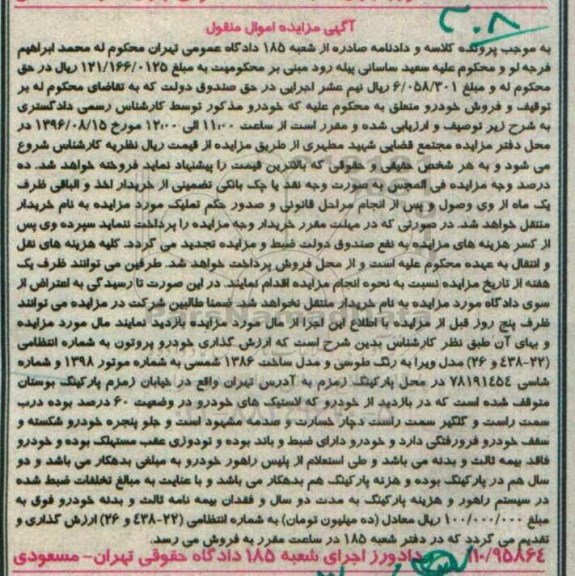 ۳۰۸
آگهی مزایده اموال منقول
به موجب پرونده کلاسه و دادنامه صادره از شعبه ۱۸۵ دادگاه عمومی تهران محکوم له محمد ابراهیم
فرجه لو و محکوم علیه سعید ساسانی پیله رود مبنی بر محکومیت به مبلغ ۱۲۱/۱۶۶/۰۱۲۵ ریال در حق
محکوم له و مبلغ ۶/۰۵۸/۳۰۱ ریال نیم عشر اجرایی در حق صندوق دولت که به تقاضای محکوم له بر
توقیف و فروش خودرو متعلق به محکوم علیه که خودرو مذکور توسط کارشناس رسمی دادگستری
به شرح زیر توصیف و ارزیابی شده و مقرر است از ساعت ۱۱:۰۰ الی ۱۲:۰۰ مورخ ۱۳۹۶/۰۸/۱۵ در
محل دفتر مزایده مجتمع قضایی شهید مطهری از طریق مزایده از قیمت ریال نظریه کارشناس شروع
می شود و به هر شخص حقیقی و حقوقی که بالاترین قیمت را پیشنهاد نماید فروخته خواهد شد. ده
درصد وجه مزایده فی المجلس به صورت وجه نقد یا چک بانکی تضمینی از خریدار اخذ و الباقی ظرف
یک ماه از وی وصول و پس از انجام مراحل قانونی و صدور حکم تملیک مورد مزایده به نام خریدار
منتقل خواهد شد. در صورتی که در مهلت مقرر خریدار وجه مزایده را پرداخت ننماید سپرده وی پس
از کسر هزینه های مزایده به نفع صندوق دولت ضبط و مزایده تجدید می گردد. کلیه هزینه های نقل
و انتقال به عهده محکوم علیه است و از محل فروش پرداخت خواهد شد. طرفین می توانند ظرف یک
هفته از تاریخ مزایده نسبت به نحوه انجام مزایده اقدام نمایند. در این صورت تا رسیدگی به اعتراض از
سوی دادگاه مورد مزایده به نام خریدار منتقل نخواهد شد. ضمنا طالبین شرکت در مزایده می توانند
ظرف پنج روز قبل از مزایده با اطلاع این اجرا از مال مورد مزایده بازدید نمایند مال مورد مزایده
و بهای آن طبق نظر کارشناس بدین شرح است که ارزش گذاری خودرو پروتون به شماره انتظامی
(۲۲-۴۳۸و ۲۶) مدل ویرا به رنگ طوسی و مدل ساخت ۱۳۸۶ شمسی به شماره موتور ۱۳۹۸ و شماره
شاسی ۷۸۱۹۱۴۵۴ در محل پارکینگ زمزم به آدرس تهران واقع در خیابان زمزم پارکینگ بوستان
متوقف شده است که در بازدید از خودرو که لاستیک های خودرو در وضعیت ۶۰ درصد بوده درب
سمت راست و گلگیر سمت راست دچار خسارت و صدمه مشهود است و جلو پنجره خودرو شکسته و
سقف خودرو فرورفتگی دارد و خودرو دارای ضبط و باند بوده و تودوزی عقب مستهلک بوده و خودرو
فاقد بیمه ثالث و بدنه می باشد و طی استعلام از پلیس راهور خودرو به مبلغی بدهکار می باشد و دو
سال هم در پارکینگ بوده و هزنه پارکینگ هم بدهکار می باشد و با عنایت به مبالغ تخلفات ضبط شده
در سیستم راهور و هزینه پارکینگ به مدت دو سال و فقدان بیمه نامه ثالث و بدنه خودرو فوق به
مبلغ ۱۰۰/۰۰۰/۰۰۰ ریال معادل (ده میلیون تومان) به شماره انتظامی (۲۲-۴۳۸ و ۲۶) ارزش گذاری و
تقدیم می گردد که در دفتر شعبه ۱۸۵ در ساعت مقرر به فروش می رسد.
۱۱۰/۹۵۸۶۴ دادورز اجرای شعبه ۱۸۵ دادگاه حقوقی تهران- مسعودی